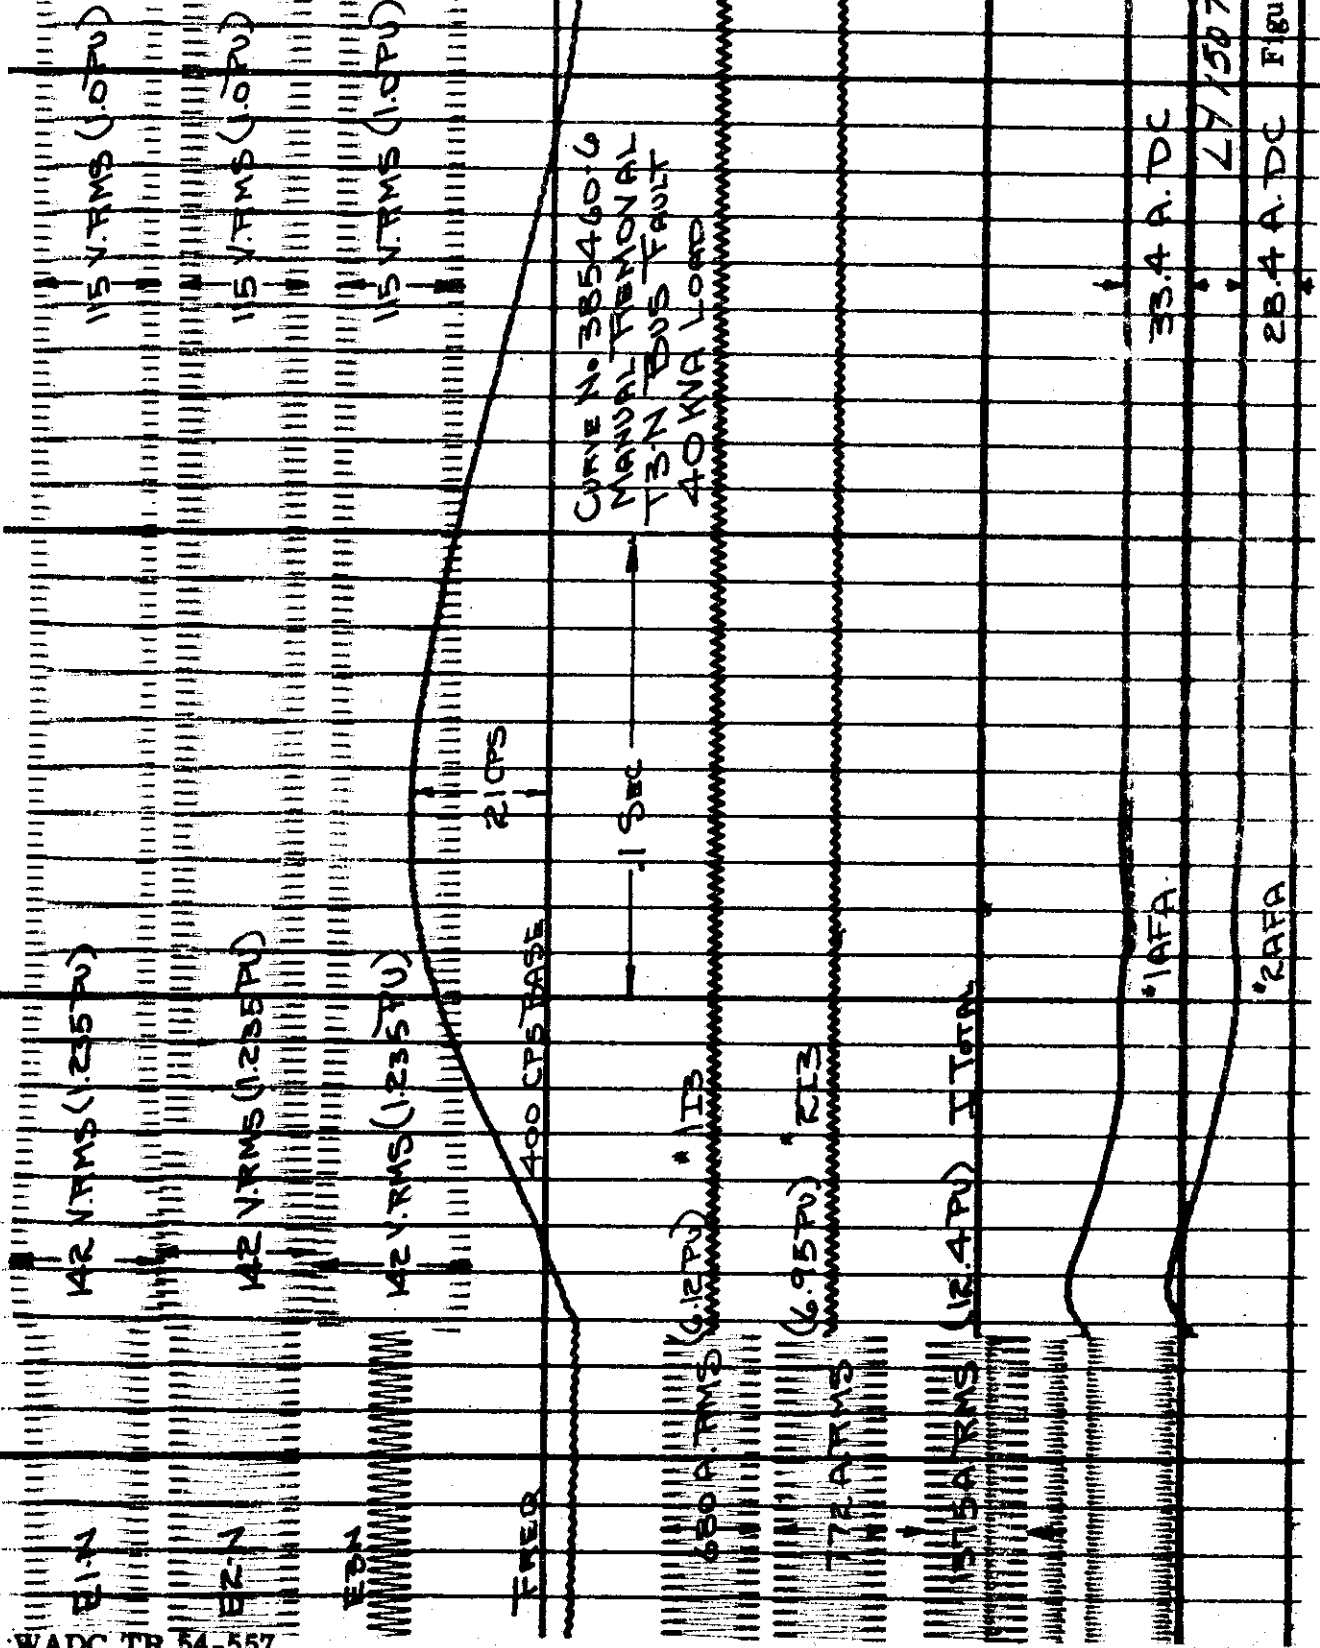 E1-N
142 V.RMS (1.235 PU)
115 V.RMS (1.0 PU)
E2-N
142 V.RMS (1.235 PU)
115 V.RMS (1.0 PU)
E3N
142 V.RMS (1.235 PU)
115 V.RMS (1.0 PU)
FREQ
400 CPS BASE
21 CPS
.1 SEC
CURVE No. 385460-6
MANUAL REMOVAL
T3-N BUS FAULT
40 KVA LOAD
680 A. RMS (6.12 PU)
* 1I3
772 A RMS (6.95 PU)
* 2I3
1375 A RMS (12.4 PU)
I TOTAL
*1AFA
33.4 A. DC
*2AFA
28.4 A. DC
Figu
WADC TR 54-557